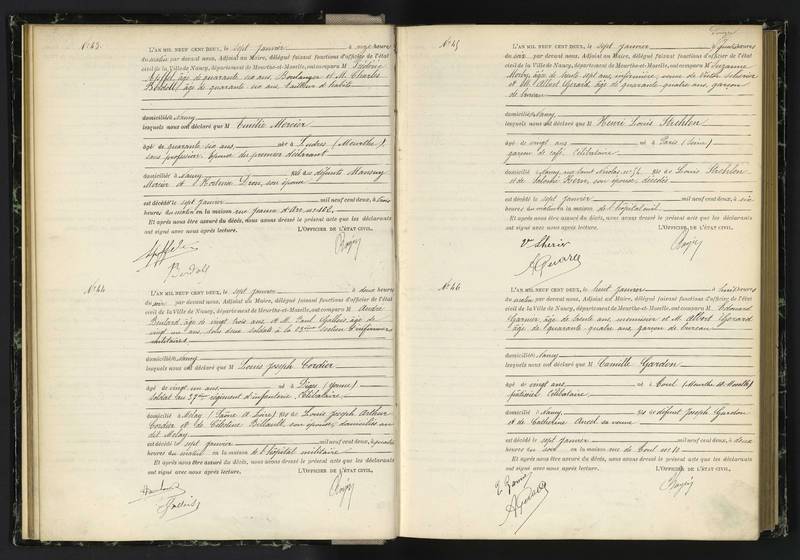 N° 43.
L'AN MIL NEUF CENT DEUX, le sept janvier à onze heures
du matin par devant nous, Adjoint au Maire, délégué faisant fonctions d'officier de l'état
civil de la Ville de Nancy, département de Meurthe-et-Moselle, ont comparu M Frédéric
âgé de quarante six ans, Boulanger et M. Charles
âgé de quarante six ans tailleur d'habits
domiciliés à Nancy
lesquels nous ont déclaré que M Emilie Mercier
agé de quarante six ans né à Ludres (Meurthe),
sans profession, épouse du premier déclarant
domicilié à Nancy fils de défunts
Mercier et d'Hortense son épouse
est décédé le sept janvier mil neuf cent deux, à trois
heures du matin en la maison rue Jeanne d'Arc
Et après nous être assuré du décès, nous avons dressé le présent acte que les déclarants
ont signé avec nous après lecture. L'OFFICIER DE L'ÉTAT CIVIL,
N° 44
L'AN MIL NEUF CENT DEUX, le sept janvier à deux heures
du soir par devant nous, Adjoint au Maire, délégué faisant fonctions d'officier de l'état
civil de la Ville de Nancy, département de Meurthe-et-Moselle, ont comparu M André
âgé de vingt trois ans et M. Paul Gallois, âgé de
vingt un ans, tous deux soldats à la section d'infirmiers
militaires
domiciliés à Nancy
lesquels nous ont déclaré que M Louis Joseph Cordier
agé de vingt un ans né à Diges (Yonne)
soldat au 37ème régiment d'infanterie, Célibataire
domicilié à Melay (Saône et Loire) fils de Louis Joseph Arthur
Cordier et de Célestine Billault, son épouse, domiciliés au
dit Melay
est décédé le sept janvier mil neuf cent deux, à
heures du matin en la maison de l'hôpital militaire
Et après nous être assuré du décès, nous avons dressé le présent acte que les déclarants
ont signé avec nous après lecture. L'OFFICIER DE L'ÉTAT CIVIL,
Gallois
N° 45
L'AN MIL NEUF CENT DEUX, le sept janvier à quatre heures
du soir par devant nous, Adjoint au Maire, délégué faisant fonctions d'officier de l'état
civil de la Ville de Nancy, département de Meurthe-et-Moselle, ont comparu M Suzanne
âgée de trente sept ans, infirmière, veuve de Victor
et M. Albert Gérard, âgé de quarante quatre ans, garçon
de bureau
domiciliés à Nancy
lesquels nous ont déclaré que M Henri Louis Strehlen
agé de vingt ans né à Paris (Seine)
garçon de café, Célibataire
domicilié à Nancy, rue Saint Nicolas, n° 54 fils de Louis Strehlen
et de Salomé son épouse, décédés
est décédé le sept janvier mil neuf cent deux, à six
heures du matin en la maison de l'hôpital civil
Et après nous être assuré du décès, nous avons dressé le présent acte que les déclarants
ont signé avec nous après lecture. L'OFFICIER DE L'ÉTAT CIVIL,
N° 46
L'AN MIL NEUF CENT DEUX, le huit janvier à huit heures
du matin par devant nous, Adjoint au Maire, délégué faisant fonctions d'officier de l'état
civil de la Ville de Nancy, département de Meurthe-et-Moselle, ont comparu M Edouard
Garnier, âgé de trente ans, menuisier et M. Albert Gérard
âgé de quarante quatre ans garçon de bureau
domiciliés à Nancy
lesquels nous ont déclaré que M Camille Gardon
agé de vingt ans né à Toul (Meurthe et Moselle)
pâtissier Célibataire
domicilié à Nancy fils de défunt Joseph Gardon
et de Catherine sa veuve
est décédé le sept janvier mil neuf cent deux, à deux
heures du soir en la maison rue de Toul
Et après nous être assuré du décès, nous avons dressé le présent acte que les déclarants
ont signé avec nous après lecture. L'OFFICIER DE L'ÉTAT CIVIL,